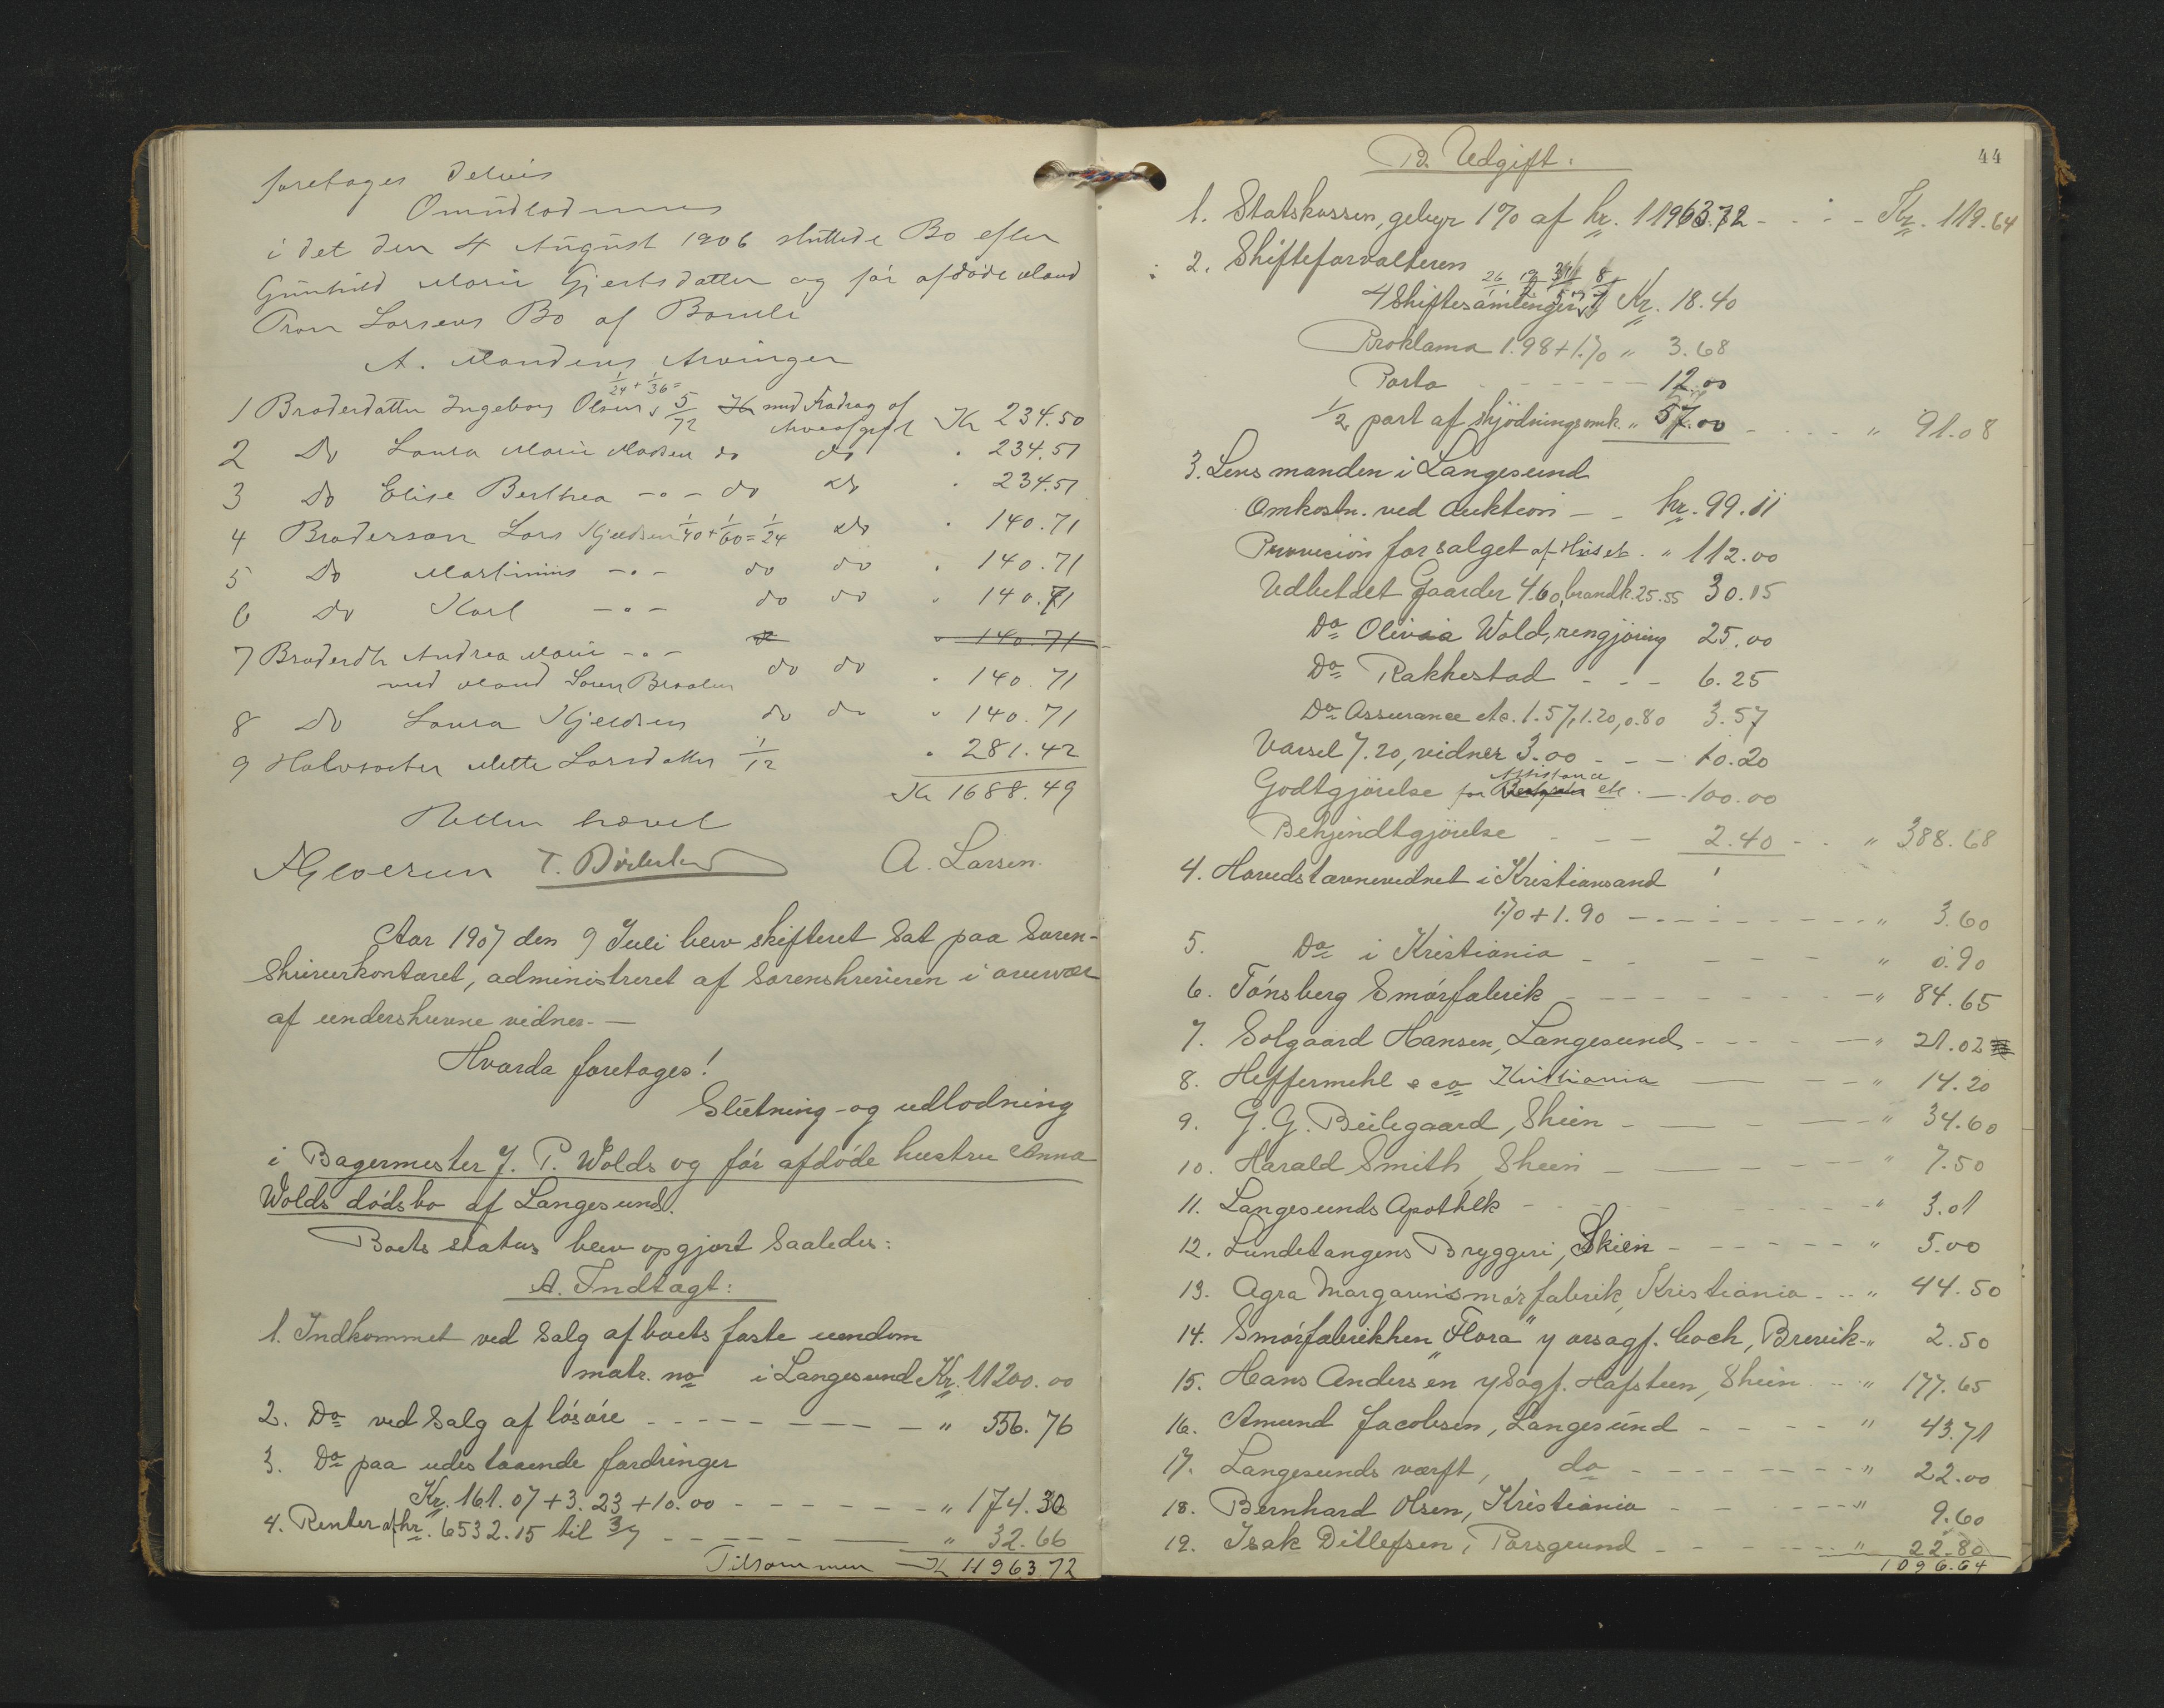 foretages delvis
Omudlodning
i det den 4 August 1906 sluttede Bo efter
Gunhild Marie Gjertsdatter og før afdøde Mand
Tron Larsens Bo af Bamle
A. Mandens Arvinger
1/24 + 1/36 =
1 Broderdatter Ingeborg Olsen 5/72 Kr med Fradrag af Arveafgift Kr 234.50
2 Do Laura Marie Madsen do do " 234.51
3 Do Elise Berthea -"- do do " 234.51
4 Broderson Lars Kjeldsen 1/40 + 1/60 = 1/24 do " 140.71
5 Do Martinius -"- do do " 140.71
6 Do Karl -"- do do " 140.71
7 Broderdtr Andrea Marie -"- do " 140.71
med Mand Søren Braaten do do " 140.71
8 Do Laura Kjeldsen do do " 140.71
9 Halvsøster Mette Larsdatter 1/12 " 281.42
Kr 1688.49
Retten hævet
A. Larsen.
Aar 1907 den 9 Juli blev skifteret sat paa Soren-
skriverkontoret, administreret af sorenskriveren i overvær
af underskrevne vidner. —
Hvorda foretoges!
Slutning - og udlodning
i Bagermester J. P. Wolds og før afdøde hustru Anna
Wolds dødsbo af Langesund.
Boets status blev opgjort saaledes:
A. Indtægt:
1. Indkommet ved salg af boets faste eiendom
matr. no i Langesund Kr. 11200.00
2. Do ved salg af løsøre - - - " 556.76
3. Do paa udestaaende fordringer
Kr. 161.07 + 3.23 + 10.00 - - - " 174.30
4. Renter af kr. 6532.15 til 3/7 - - - " 32.66
Tilsammen Kr 11963.72
44
B. Udgift.
1. Statskassen, gebyr 1% af kr. 11963.72 - - - Kr. 119.64
2. Skifteforvalteren
4 Skiftesamlinger Kr. 18.40
Proklama 1.98 + 1.70 " 3.68
Porto - - - 12.00
1/2 part af skjødningsomk. " 57.00 - - - " 91.08
3. Lensmanden i Langesund
Omkostn. ved auktion - - kr. 99.11
Provision for salget af Huset. " 112.00
Udbetalt Gaarder 4.60, brandk. 25.55 30.15
Do Olivia Wold, rengjøring 25.00
Do Rakkestad - - - 6.25
Do Assurance etc. 1.57, 1.20, 0.80 3.57
Varsel 7.20, vidner 3.00 - - - 10.20
Godtgjørelse for Assistance etc. - 100.00
Bekjendtgjørelse - - - 2.40 - - " 388.68
4. Hovedstævnevidnet i Kristiansand
1.70 + 1.90 - - - " 3.60
5. Do i Kristiania - - - " 0.90
6. Tønsberg Smørfabrik - - - " 84.65
7. Solgaard Hansen, Langesund - - - " 21.02
8. Heffermehl & co Kristiania - - - " 14.20
9. G. G. Beilegaard, Skien - - - " 34.60
10. Harald Smith, Skien - - - " 7.50
11. Langesunds Apothek - - - " 3.01
12. Lundetangens Bryggeri, Skien - - - " 5.00
13. Agra Margarinsmørfabrik, Kristiania - - - " 44.50
14. Smørfabrikken "Flora" v overagf. Coch, Brevik - " 2.50
15. Hans Andersen v Sagf. Hafsteen, Skien - - - " 177.65
16. Amund Jacobsen, Langesund - - - " 43.71
17. Langesunds værft, do - - - " 22.00
18. Bernhard Olsen, Kristiania - - - " 9.60
19. Isak Ditlefsen, Porsgrund - - - " 22.80
1096.64